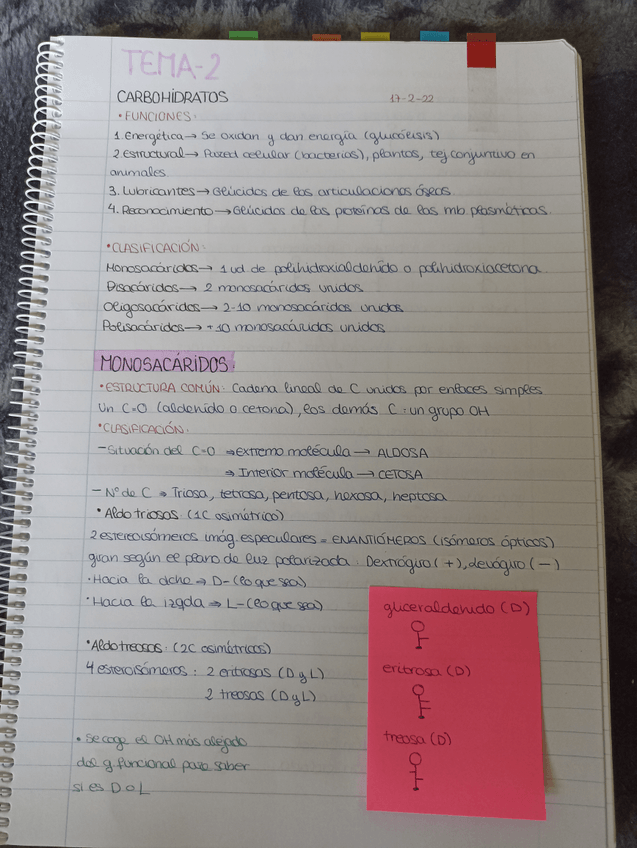 TEMA-2
CARBOHIDRATOS 17-2-22
• FUNCIONES:
1. Energética → Se oxidan y dan energía (glucólisis)
2. Estructural → Pared celular (bacterias), plantas, tej conjuntivo en
animales
3. Lubricantes → Glúcidos de las articulaciones óseas
4. Reconocimiento → Glúcidos de las proteínas de las mb plasmáticas
• CLASIFICACIÓN:
Monosacáridos → 1 ud de polihidroxialdehído o polihidroxiacetona
Disacáridos → 2 monosacáridos unidos
Oligosacáridos → 2-10 monosacáridos unidos
Polisacáridos → +10 monosacáridos unidos
MONOSACÁRIDOS:
• ESTRUCTURA COMÚN: Cadena lineal de C unidos por enlaces simples
Un C=O (aldehído o cetona), los demás C : un grupo OH
• CLASIFICACIÓN:
- Situación del C=O ⇒ Extremo molécula → ALDOSA
⇒ Interior molécula → CETOSA
- Nº de C ⇒ Triosa, tetrosa, pentosa, hexosa, heptosa
• Aldotriosas: (1C asimétrico)
2 estereoisómeros imág. especulares = ENANTIÓMEROS (isómeros ópticos)
giran según el plano de luz polarizada. Dextrógiro (+), levógiro (-)
· Hacia la dcha ⇒ D- (lo que sea)
· Hacia la izqda ⇒ L- (lo que sea)
• Aldotreosas: (2C asimétricos)
4 estereoisómeros : 2 eritrosas (D y L)
2 treosas (D y L)
• Se coge el OH más alejado
del g. funcional para saber
si es D o L
gliceraldehido (D)
eritrosa (D)
treosa (D)